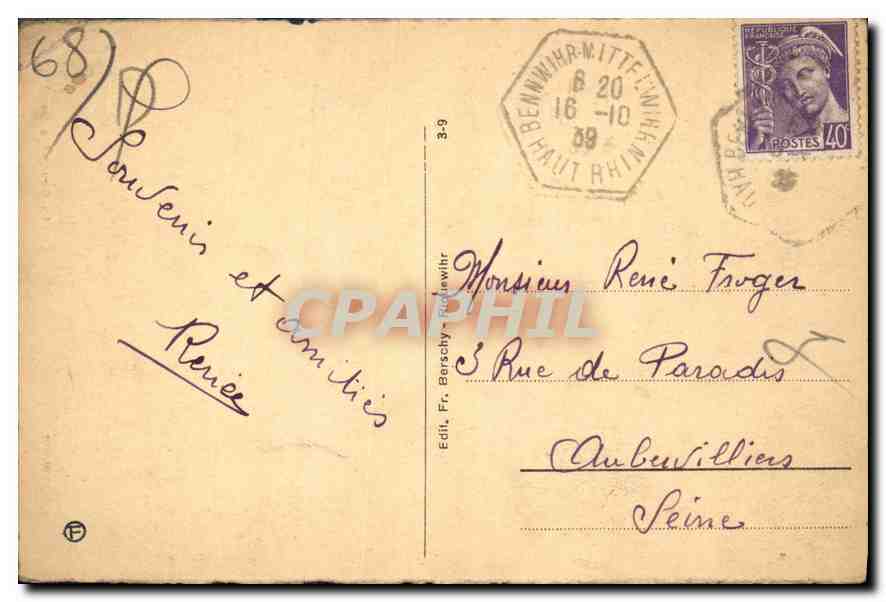 68)
Souvenir
et
amitiés
Renée
3-9
Edit. Fr. Berschy - Riquewihr
BENNWIHR-MITTELWIHR
8 20
16 -10
39
HAUT RHIN
REPUBLIQUE
FRANÇAISE
POSTES
40
Monsieur René Froger
3 Rue de Paradis
Aubervilliers
Seine
F
CPAPHIL